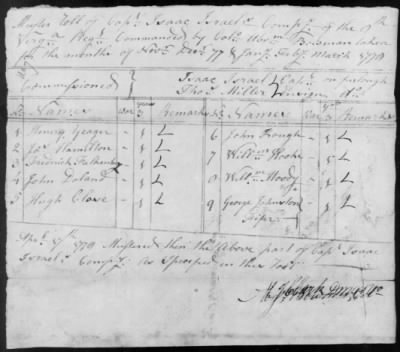 Muster Roll of Capt. Isaac Israel's Compy. of the 8th
Virga. Regt. Commanded by Colo. Abrm. Bowman taken
for the months of Novr. Decr. 77 & Jany. Feby. March 1778
Commissioned } Isaac Israel Capt. on furlough
Thos. Miller Ensign do.
No. Names Remarks No. Names Remarks
1 Henry Yeager
2 Jos. Hamilton
3 Fredrick Falkenbg
4 John Doland
5 Hugh Clowe
6 John Prough
7 Willm. Hooke
8 Willm. Moody
9 George Johnston
Fifer
Apr. 8th 1778 Mustered then the Above part of Capt. Isaac
Israel's Compy. As Specified in this Roll